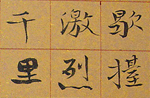 歇擡
激烈
千里